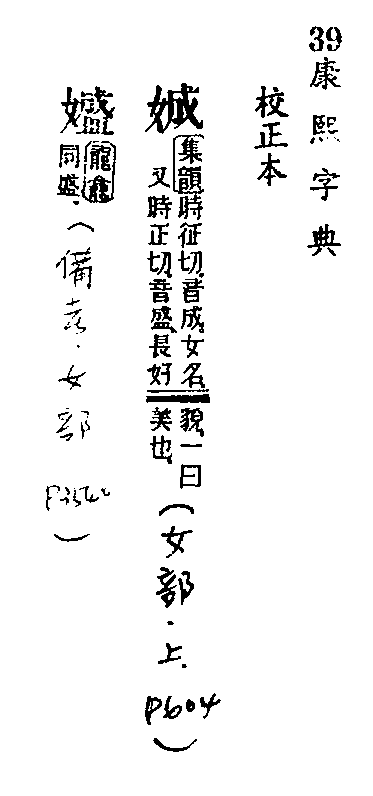 39康熙字典
校正本
娍
集韻時征切音成女名
又時正切音盛長好
貌一曰
美也
(女部·上 P604)
龍龕
同盛
(備考·女部
)